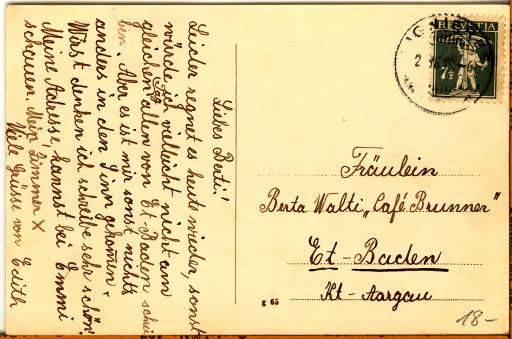 Liebes Berti!
Leider regnet es heute wieder, sonst
würde ich vielleicht nicht am
gleichen Tag allen von Et. Baden schrei
ben. Aber es ist mir sonst nichts
anders in den Sinn gekommen.
Wäist denken ich schreibe sehr schön!
Meine Adresse, kannst bei Emmi
schauen. Mein Zimmer X
Viele Grüsse von Edith
HELVETIA
7½
Fräulein
Berta Walti „Café. Brunner"
Et-Baden
Kt-Aargau
g 65
18-